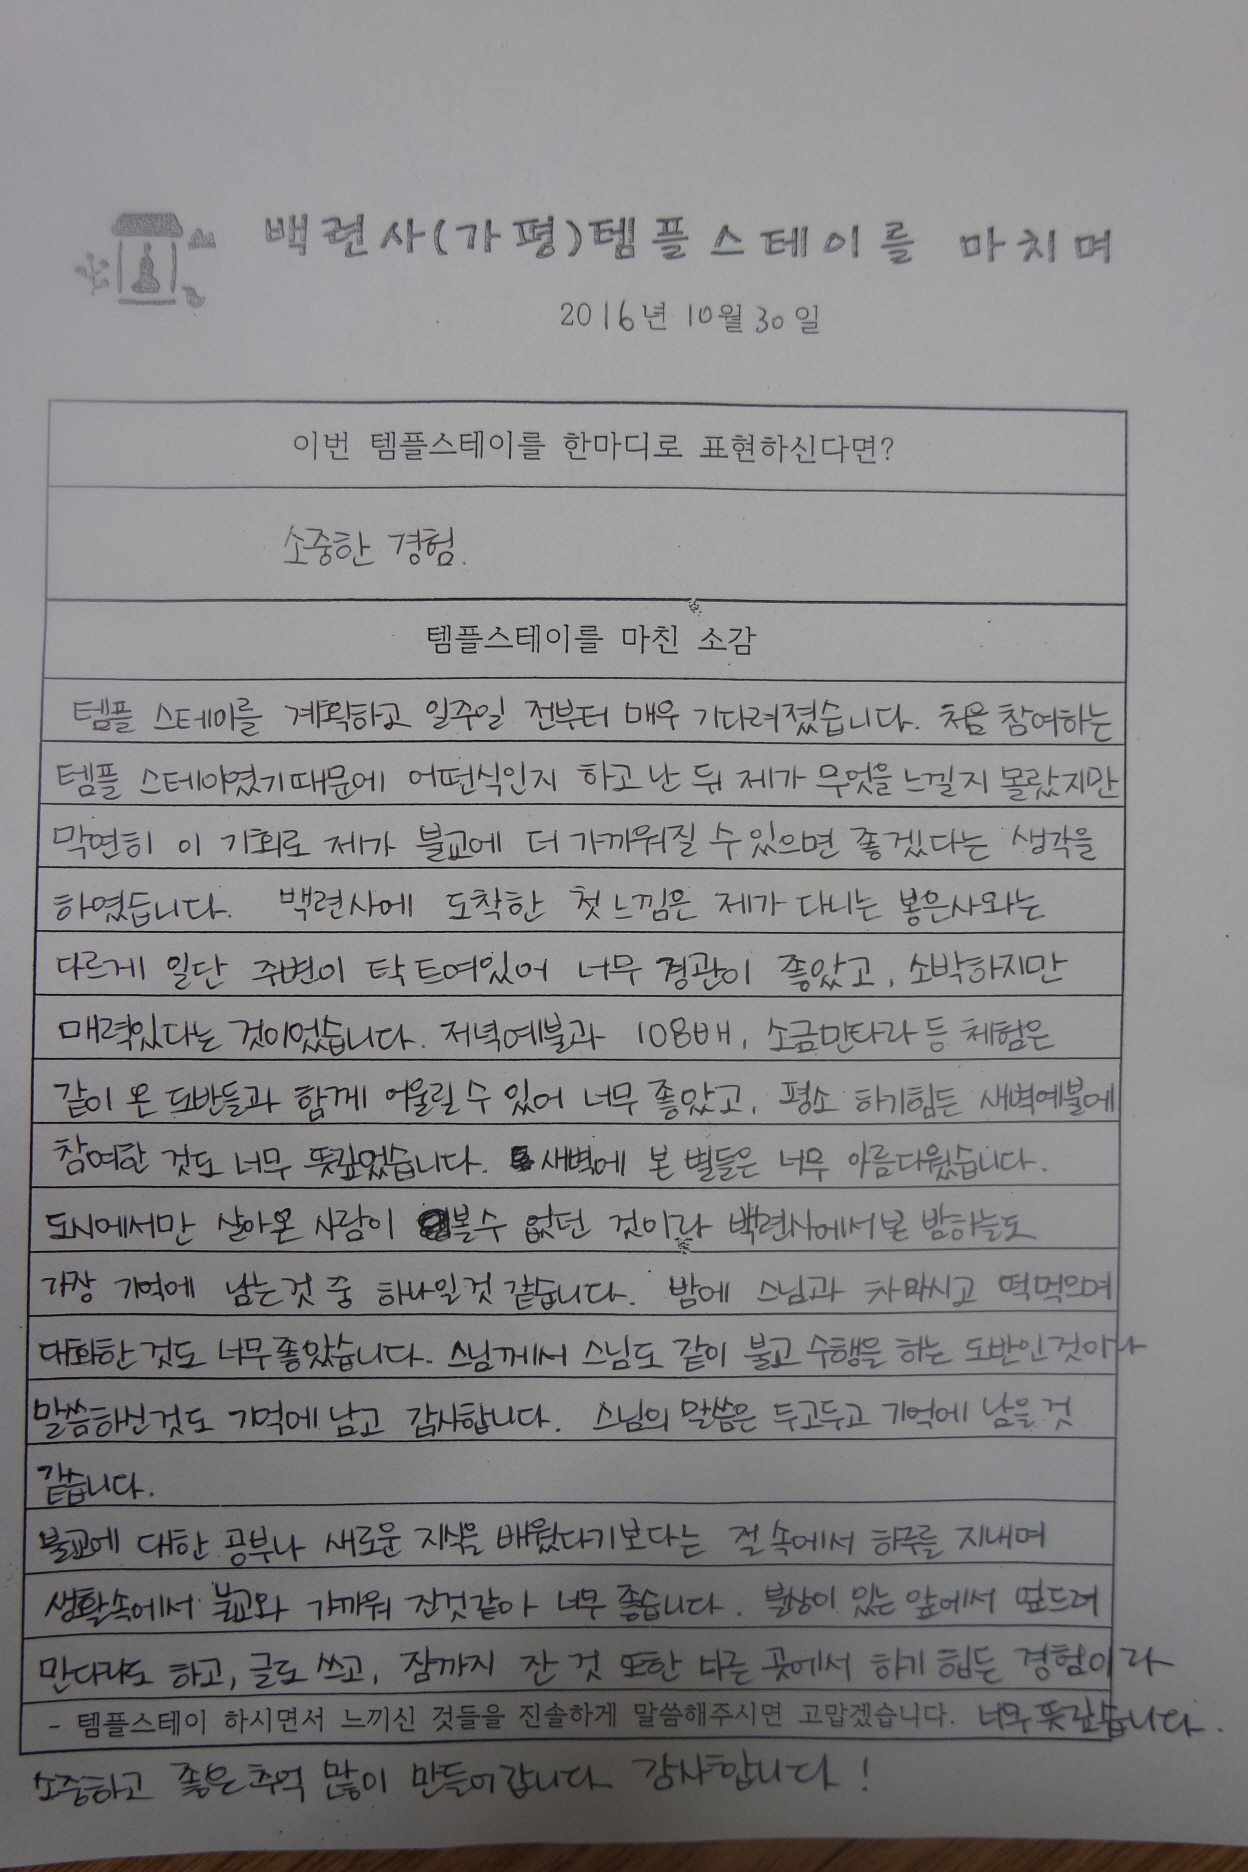 백련사(가평)템플스테이를 마치며
2016년 10월 30일
이번 템플스테이를 한마디로 표현하신다면?
소중한 경험.
템플스테이를 마친 소감
템플 스테이를 계획하고 일주일 전부터 매우 기다려졌습니다. 처음 참여하는
템플 스테이였기때문에 어떤식인지 하고 난 뒤 제가 무엇을 느낄지 몰랐지만
막연히 이 기회로 제가 불교에 더 가까워질 수 있으면 좋겠다는 생각을
하였습니다. 백련사에 도착한 첫 느낌은 제가 다니는 봉은사와는
다르게 일단 주변이 탁 트여있어 너무 경관이 좋았고, 소박하지만
매력있다는 것이었습니다. 저녁예불과 108배, 소금만타라 등 체험은
같이 온 도반들과 함께 어울릴 수 있어 너무 좋았고, 평소 하기힘든 새벽예불에
참여한 것도 너무 뜻깊었습니다. 새벽에 본 별들은 너무 아름다웠습니다.
도시에서만 살아온 사람이 볼수 없던 것이라 백련사에서 본 밤하늘도
가장 기억에 남는것 중 하나일것 같습니다. 밤에 스님과 차마시고 떡먹으며
대화한 것도 너무좋았습니다. 스님께서 스님도 같이 불교 수행을 하는 도반인것이라
말씀하신것도 기억에 남고 감사합니다. 스님의 말씀은 두고두고 기억에 남을 것
같습니다.
불교에 대한 공부나 새로운 지식을 배웠다기보다는 절 속에서 하루를 지내며
생활속에서 불교와 가까워 진것같아 너무 좋습니다. 불상이 있는 앞에서 엎드려
만다라도 하고, 글도 쓰고, 잠까지 잔 것 또한 다른 곳에서 하기 힘든 경험이라
- 템플스테이 하시면서 느끼신 것들을 진솔하게 말씀해주시면 고맙겠습니다. 너무 뜻깊습니다.
소중하고 좋은 추억 많이 만들어갑니다 감사합니다!